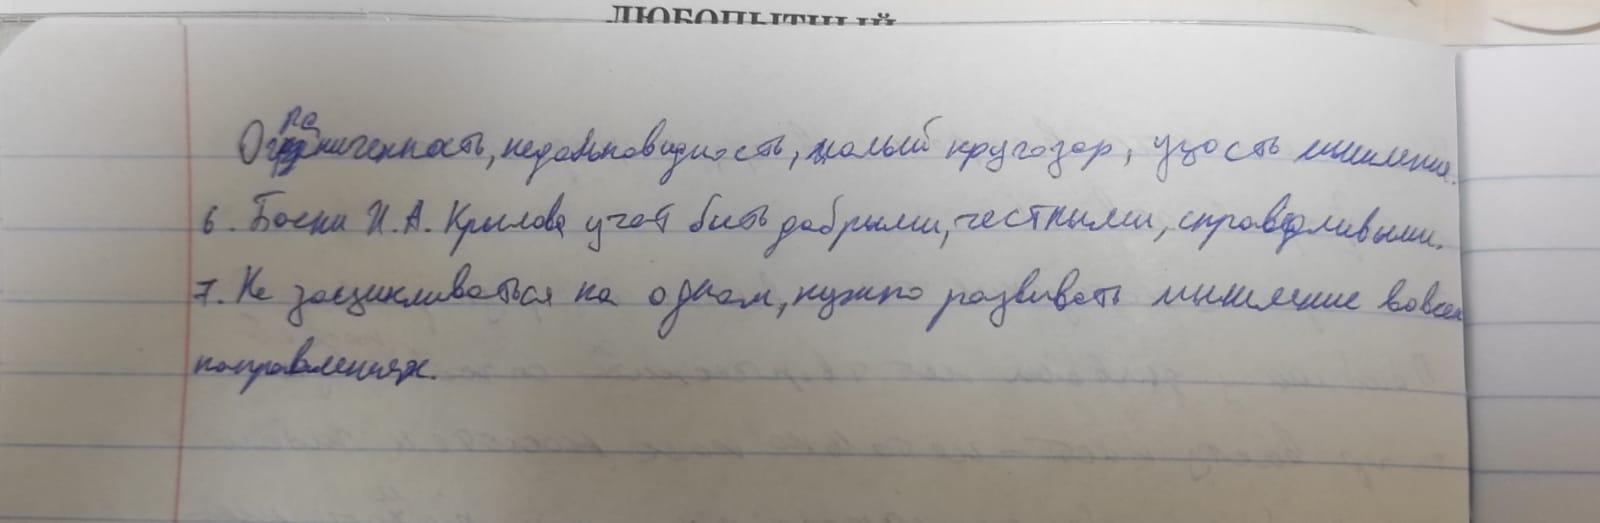 ЛЮБОПЫТНЫЙ
Ограниченность, недальновидность, малый кругозор, узость мышления.
6. Басни И.А. Крылова учат быть добрыми, честными, справедливыми.
7. Не зацикливаться на одном, нужно развивать мышление во всех
направлениях.